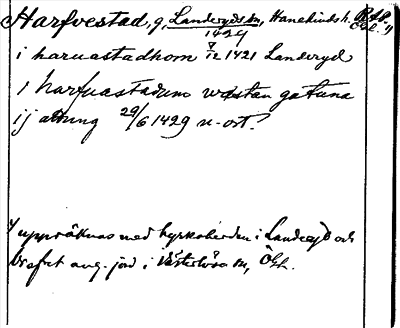 Harfvestad, g, Landeryds sn, Hanekinds h. Ögl.
1429
i haruastadhom 7/12 1421 Landeryd
i harfuastadum wæstan gatuna
ij attung 29/6 1429 u. ort.
uppräknas med kyrkoherden i Landeryd och
brefvet ang. jord i Västerlösa sn, Ögl.